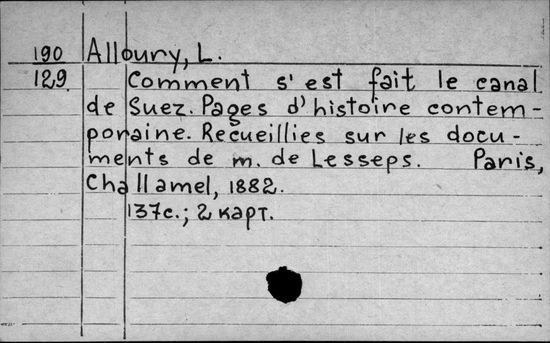 190 Alloury, L.
129 Comment s'est fait le canal
de Suez. Pages d'histoire contem-
poraine. Recueillies sur les docu-
ments de m. de Lesseps. Paris,
Challamel, 1882.
137c.; 2 карт.